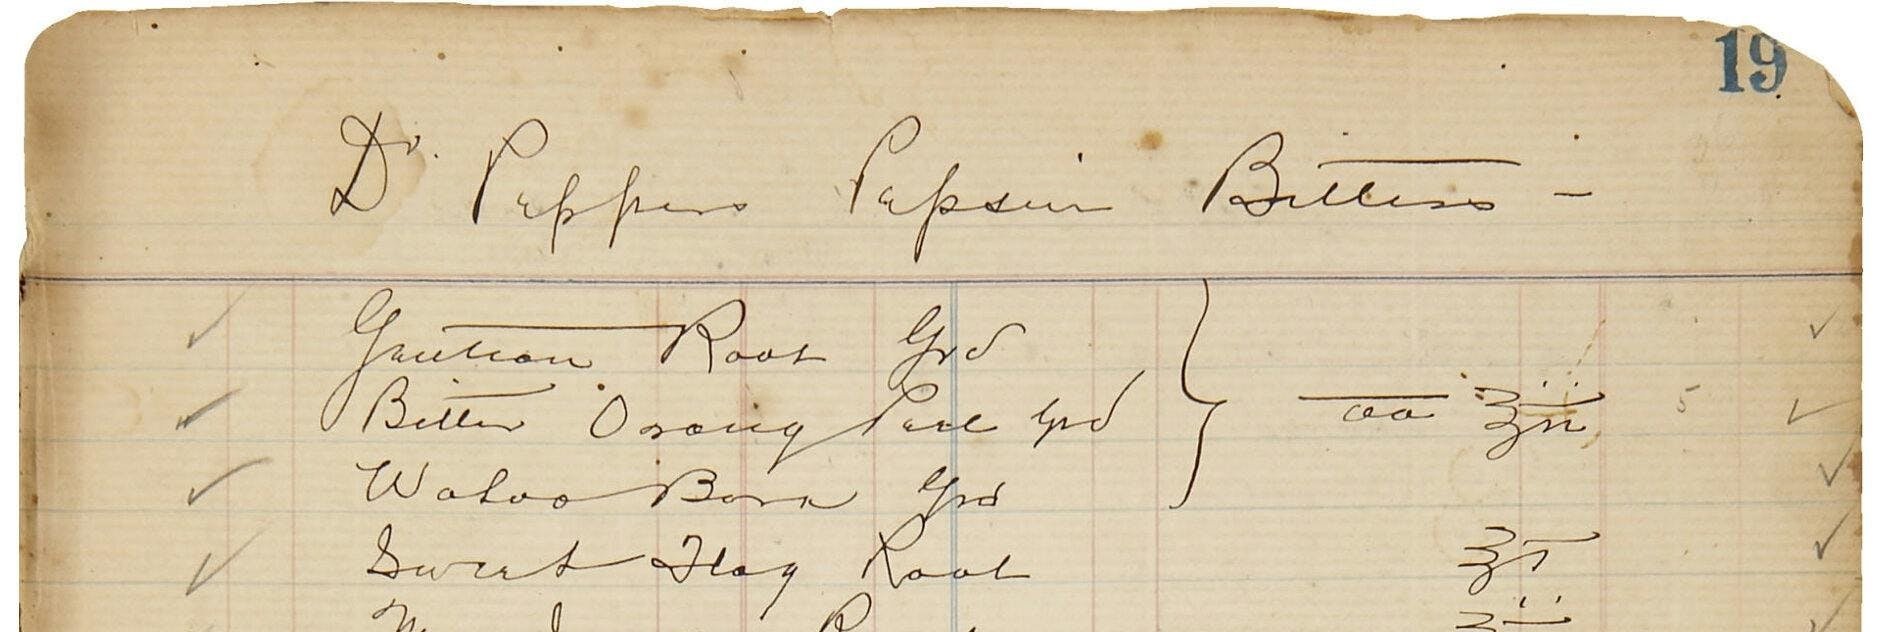 19
Dr. Peppers Pepsin Bitters —
Gentian Root Grd
Bitter Orang Peel Grd } aa ℥ii 5
Wahoo Bark Grd
Sweet Flag Root ℥i
℥ii